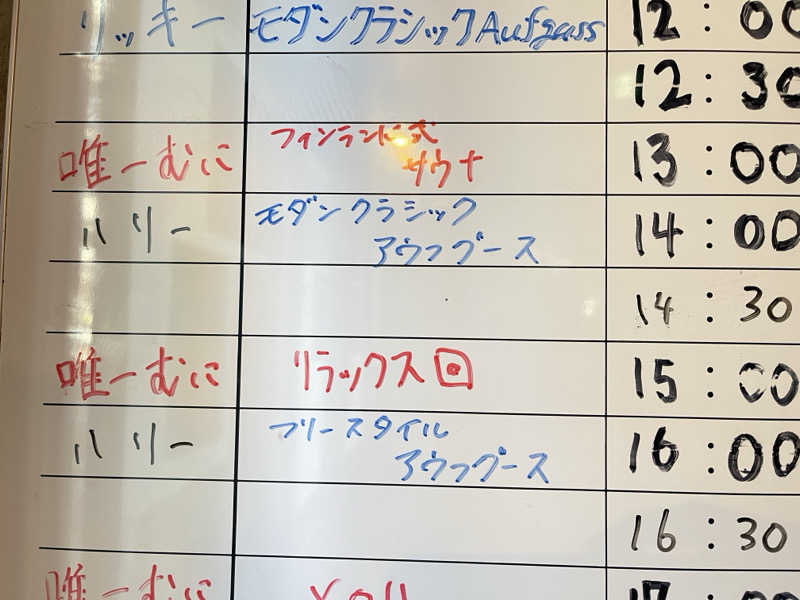 リッキー モダンクラシックAufguss 12:00
12:30
唯一むに フィンランド式 サウナ 13:00
ハリー モダンクラシック アウフグース 14:00
14:30
唯一むに リラックス回 15:00
ハリー フリースタイル アウフグース 16:00
16:30
唯一むに